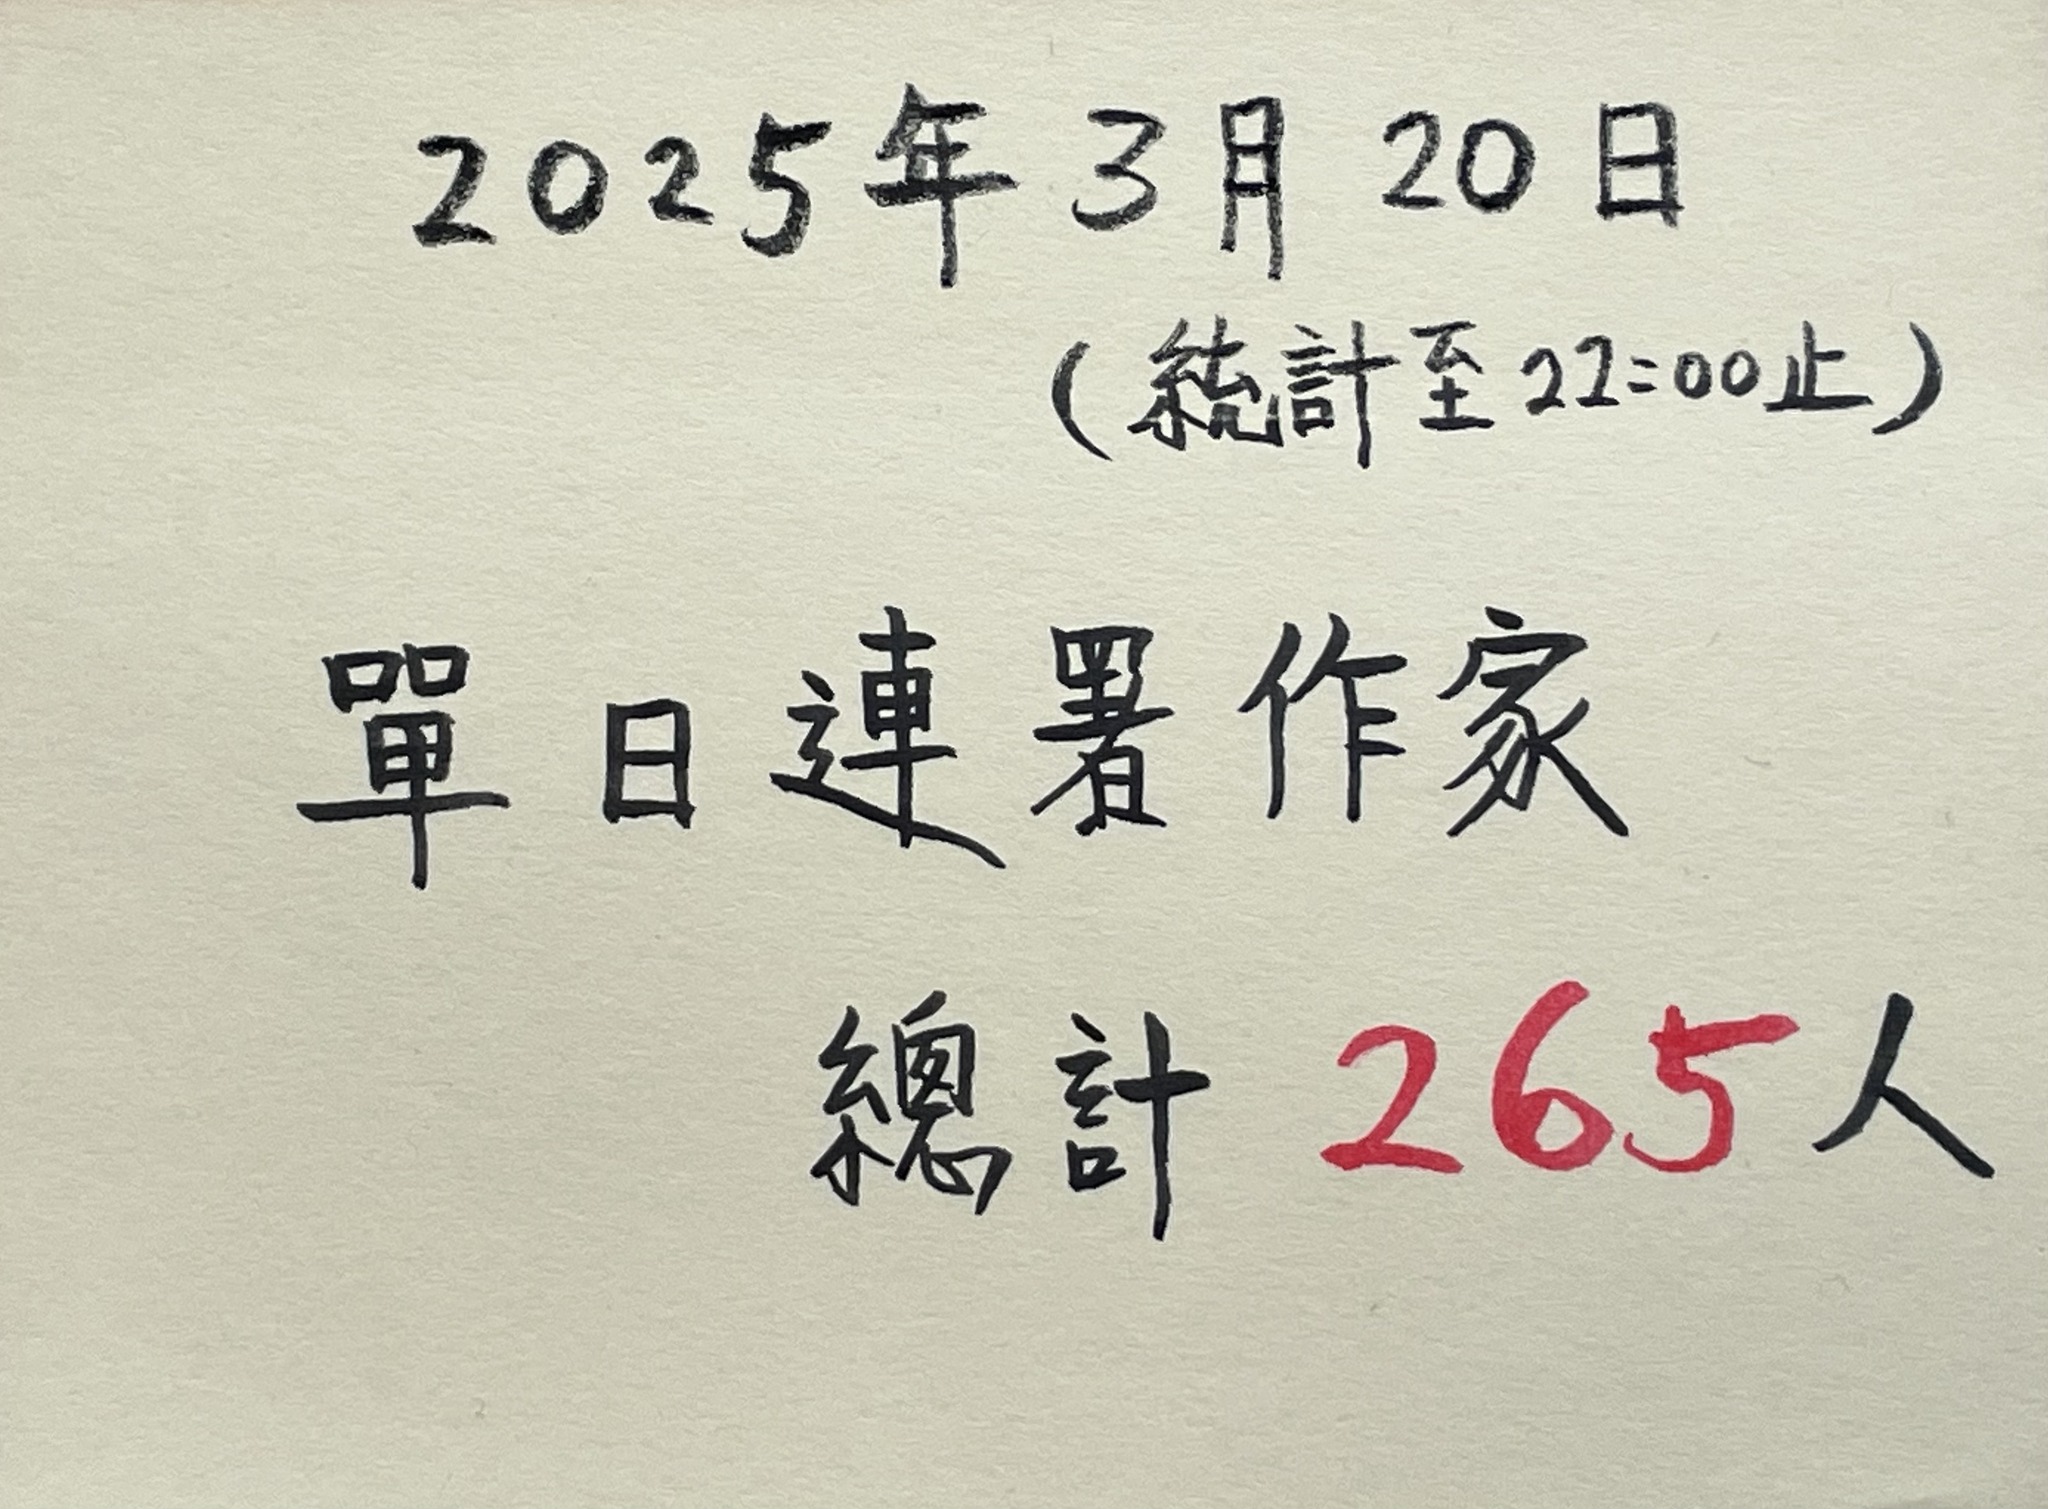 2025年3月20日
(統計至22:00止)
單日連署作家
總計265人